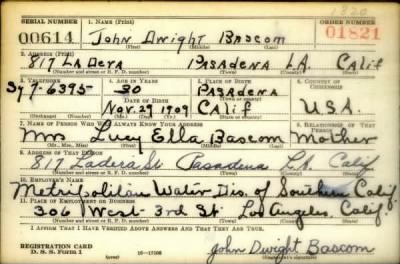 1820
SERIAL NUMBER 1. NAME (Print) ORDER NUMBER
00614 John Dwight Bascom 01821
2. ADDRESS (Print)
817 LaDera Pasadena L.A. Calif
(Number and street or R. F. D. number) (Town) (County) (State)
3. TELEPHONE 4. AGE IN YEARS 5. PLACE OF BIRTH 6. COUNTRY OF CITIZENSHIP
Sy 7-6395 30 Pasadena
DATE OF BIRTH (Town or county)
Nov. 29 1909 Calif U.S.A.
(Exchange) (Number) (Mo.) (Day) (Yr.) (State or country)
7. NAME OF PERSON WHO WILL ALWAYS KNOW YOUR ADDRESS 8. RELATIONSHIP OF THAT PERSON
Mrs Lucy Ella Bascom Mother
(Mr., Mrs., Miss) (First) (Middle) (Last)
9. ADDRESS OF THAT PERSON
817 Ladera St Pasadena L.A. Calif
(Number and street or R. F. D. number) (Town) (County) (State)
10. EMPLOYER'S NAME
Metropolitan Water Dis. of Southern Calif.
11. PLACE OF EMPLOYMENT OR BUSINESS
306 West 3rd St. Los Angeles, Calif.
(Number and street or R. F. D. number) (Town) (County) (State)
I AFFIRM THAT I HAVE VERIFIED ABOVE ANSWERS AND THAT THEY ARE TRUE.
REGISTRATION CARD
D. S. S. FORM 1 16-17105 John Dwight Bascom